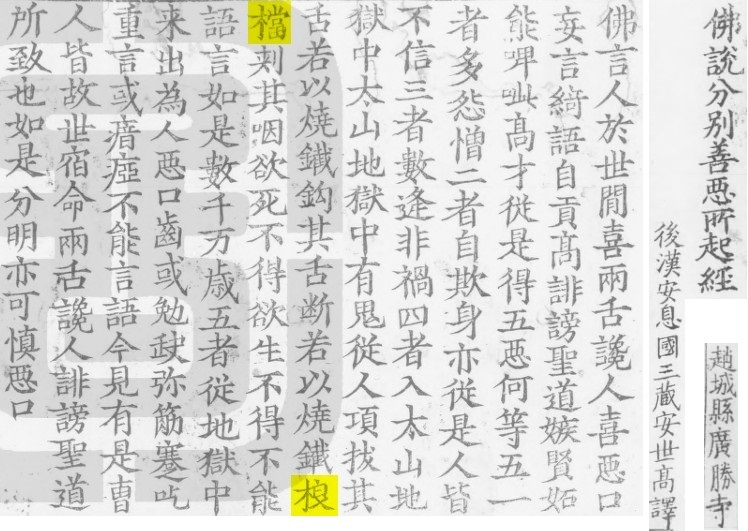 佛說分別善惡所起經
後漢安息國三藏安世高譯
趙城縣廣勝寺
佛言人於世間喜兩舌讒人喜惡口
妄言綺語自貢髙誹謗聖道嫉賢妬
能啤呲髙才從是得五惡何等五一
者多怨憎二者自欺身亦從是人皆
不信三者數逢非禍四者入太山地
獄中太山地獄中有鬼從人項拔其
舌若以燒鐵鈎其舌断若以燒鐵桹
檔刾其咽欲死不得欲生不得不能
語言如是數千万歲五者從地獄中
来出為人惡口齒或勉缺弥筋蹇吃
重言或瘖瘂不能言語今見有是曹
人皆故世宿命兩舌讒人誹謗聖道
所致也如是分明亦可慎惡口